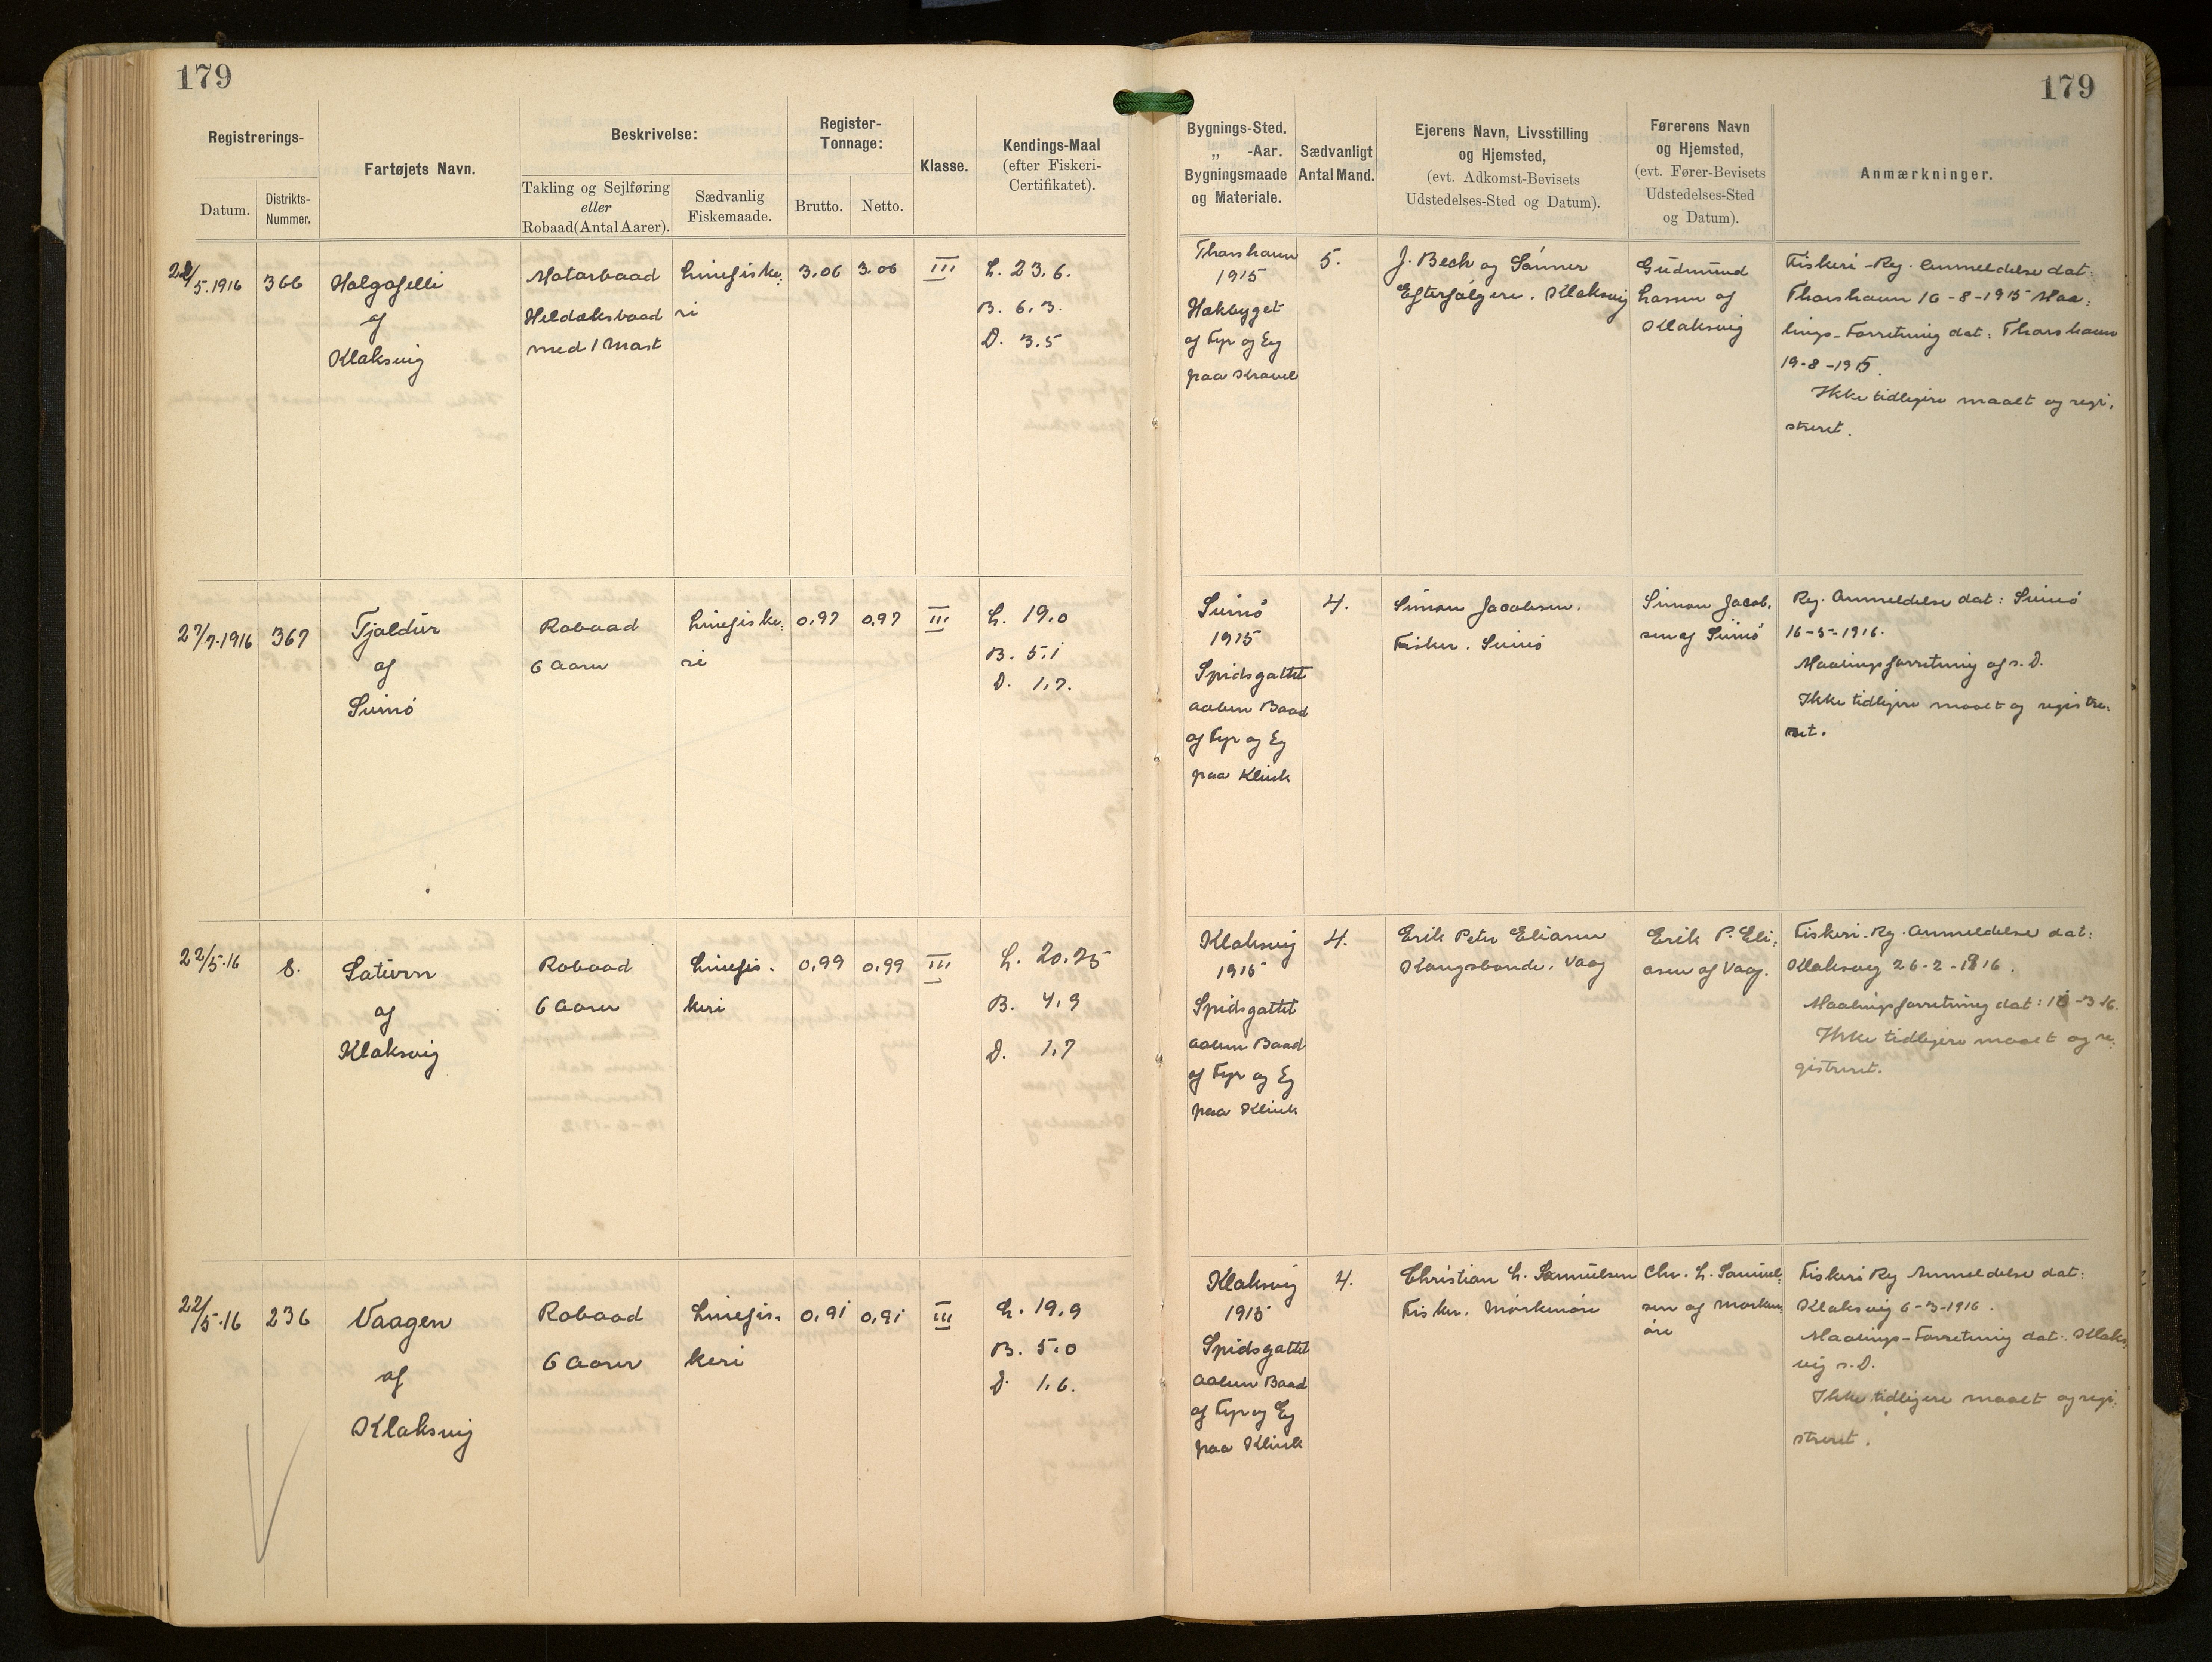 179
179
Registrerings-
Datum.
Distrikts-
Nummer.
Fartøjets Navn.
Beskrivelse:
Takling og Sejlføring
eller
Robaad (Antal Aarer).
Sædvanlig
Fiskemaade.
Register-
Tonnage:
Brutto.
Netto.
Klasse.
Kendings-Maal
(efter Fiskeri-
Certifikatet).
Bygnings-Sted.
„ -Aar.
Bygningsmaade
og Materiale.
Sædvanligt
Antal Mand.
Ejerens Navn, Livsstilling
og Hjemsted,
(evt. Adkomst-Bevisets
Udstedelses-Sted og Datum).
Førerens Navn
og Hjemsted,
(evt. Fører-Bevisets
Udstedelses-Sted
og Datum).
Anmærkninger.
22/5.1916
366
Halgafelli
af
Klaksvig
Motorbaad
Heldæksbaad
med 1 Mast
Linefiske:
ri
3.06
3.06
III
L. 23.6.
B. 6.3.
D. 3.5
Thorshavn
1915
Hækbyget
af Fyr og Eg
paa Kravel
5.
J. Bech og Sønner
Efterfølgere. Klaksvig
Gudmund
Larsen af
Klaksvig
Fiskeri-Reg. Anmeldelse dat:
Thorshavn 16-8-1915 Maa:
lings-Forretning dat: Thorshavn
19-8-1915.
Ikke tidligere maalt og regi:
streret.
27/7.1916
367
Tjaldur
af
Svinø
Robaad
6 Aarer
Linefiske:
ri
0,97
0,97
III
L. 19.0
B. 5.1
D. 1,7.
Svinø
1915
Spidsgattet
aaben Baad
af Fyr og Eg
paa Klink
4.
Simon Jacobsen.
Fisker. Svinø
Simon Jacob,
sen af Svinø
Reg. Anmeldelse dat: Svinø
16-5-1916.
Maalingsforretning af s. D.
Ikke tidligere maalt og registre:
ret.
22/5.16
8.
Saturn
af
Klaksvig
Robaad
6 Aarer
Linefis.
keri
0,99
0,99
III
L. 20.75
B. 4,9
D. 1,7
Klaksvig
1915
Spidsgattet
aaben Baad
af Fyr og Eg
paa Klink
4.
Erik Peter Eliasen
Kongsbonde. Vaag
Erik P. Eli:
asen af Vaag.
Fiskeri-Reg. Anmeldelse dat:
Klaksvig 26-2-1916.
Maalingsforretning dat: -3-16.
Ikke tidligere maalt og re:
gistreret.
22/5.16
236
Vaagen
af
Klaksvig
Robaad
6 Aarer
Linefis.
keri
0,91
0,91
III
L. 19.9
B. 5.0
D. 1.6.
Klaksvig
1915
Spidsgattet
aaben Baad
af Fyr og Eg
paa Klink
4.
Christian L. Samuelsen
Fisker. Mørkenøre
Chr. L. Samuel:
sen af Mørken:
øre
Fiskeri Reg Anmeldelse dat:
Klaksvig 6-3-1916.
Maalings-Forretning dat: Klaks:
vig s. D.
Ikke tidligere maalt og regi:
streret.